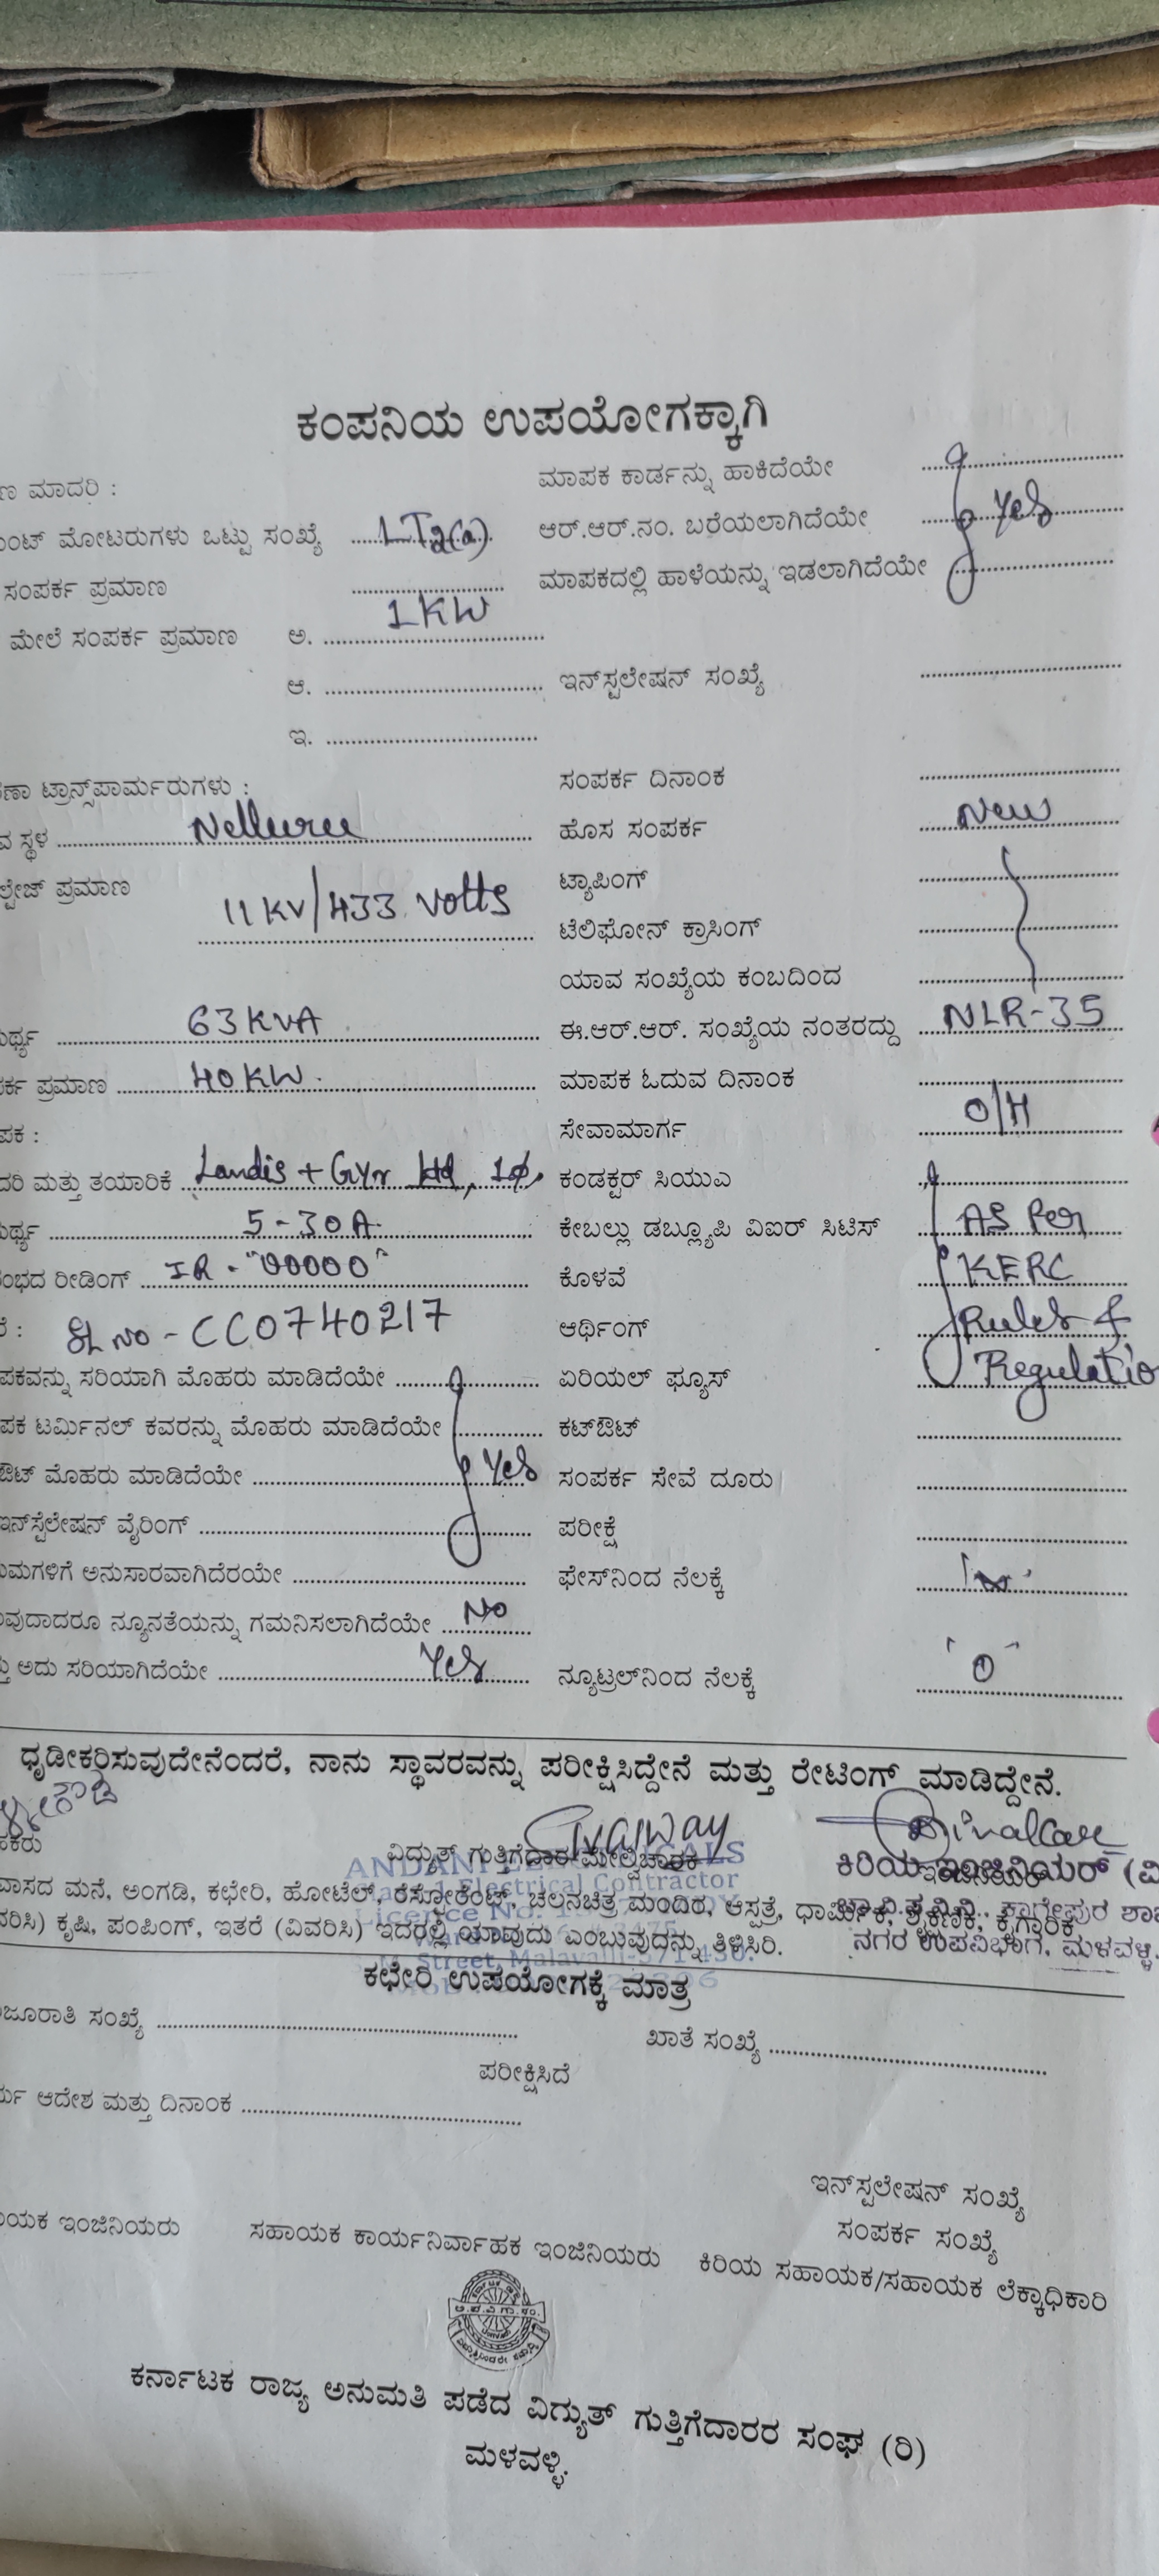 ಕಂಪನಿಯ ಉಪಯೋಗಕ್ಕಾಗಿ
ಣ ಮಾದರಿ : ಮಾಪಕ ಕಾರ್ಡನ್ನು ಹಾಕಿದೆಯೇ
ಂಟ್ ಮೋಟರುಗಳು ಒಟ್ಟು ಸಂಖ್ಯೆ LT2(a) ಆರ್.ಆರ್.ನಂ. ಬರೆಯಲಾಗಿದೆಯೇ Yes
ಸಂಪರ್ಕ ಪ್ರಮಾಣ ಮಾಪಕದಲ್ಲಿ ಹಾಳೆಯನ್ನು ಇಡಲಾಗಿದೆಯೇ
ಮೇಲೆ ಸಂಪರ್ಕ ಪ್ರಮಾಣ ಅ. 1KW
ಆ. ಇನ್‌ಸ್ಟಲೇಷನ್ ಸಂಖ್ಯೆ
ಇ.
ಣಾ ಟ್ರಾನ್ಸ್‌ಪಾರ್ಮರುಗಳು : ಸಂಪರ್ಕ ದಿನಾಂಕ
ವ ಸ್ಥಳ Nelluru ಹೊಸ ಸಂಪರ್ಕ New
ಲ್ಟೇಜ್ ಪ್ರಮಾಣ 11KV/433 Volts ಟ್ಯಾಪಿಂಗ್
ಟೆಲಿಫೋನ್ ಕ್ರಾಸಿಂಗ್
ಯಾವ ಸಂಖ್ಯೆಯ ಕಂಬದಿಂದ
ರ್ಥ್ಯ 63KVA ಈ.ಆರ್.ಆರ್. ಸಂಖ್ಯೆಯ ನಂತರದ್ದು NLR-35
ರ್ಕ ಪ್ರಮಾಣ 40KW ಮಾಪಕ ಓದುವ ದಿನಾಂಕ
ಪಕ : ಸೇವಾಮಾರ್ಗ O/H
ದರಿ ಮತ್ತು ತಯಾರಿಕೆ Landis + Gyr Ltd, 1φ, ಕಂಡಕ್ಟರ್ ಸಿಯುಎ
ರ್ಥ್ಯ 5-30A ಕೇಬಲ್ಲು ಡಬ್ಲ್ಯೂಪಿ ವಿಐರ್ ಸಿಟಿಸ್ AS Per
ಂಭದ ರೀಡಿಂಗ್ IR - "00000" ಕೊಳವೆ KERC
ೆ : SL NO - CC0740217 ಆರ್ಥಿಂಗ್ Rules &
ಪಕವನ್ನು ಸರಿಯಾಗಿ ಮೊಹರು ಮಾಡಿದೆಯೇ ಏರಿಯಲ್ ಫ್ಯೂಸ್ Regulatio
ಪಕ ಟರ್ಮಿನಲ್ ಕವರನ್ನು ಮೊಹರು ಮಾಡಿದೆಯೇ ಕಟ್‌ಔಟ್
ಔಟ್ ಮೊಹರು ಮಾಡಿದೆಯೇ Yes ಸಂಪರ್ಕ ಸೇವೆ ದೂರು
ಇನ್‌ಸ್ಟೆಲೇಷನ್ ವೈರಿಂಗ್ ಪರೀಕ್ಷೆ
ಮಗಳಿಗೆ ಅನುಸಾರವಾಗಿದೆರಯೇ ಫೇಸ್‌ನಿಂದ ನೆಲಕ್ಕೆ
ವುದಾದರೂ ನ್ಯೂನತೆಯನ್ನು ಗಮನಿಸಲಾಗಿದೆಯೇ No
ತು ಅದು ಸರಿಯಾಗಿದೆಯೇ Yes ನ್ಯೂಟ್ರಲ್‌ನಿಂದ ನೆಲಕ್ಕೆ "0"
ಧೃಡೀಕರಿಸುವುದೇನೆಂದರೆ, ನಾನು ಸ್ಥಾವರವನ್ನು ಪರೀಕ್ಷಿಸಿದ್ದೇನೆ ಮತ್ತು ರೇಟಿಂಗ್ ಮಾಡಿದ್ದೇನೆ.
ಕರು ವಿದ್ಯುತ್ ಗುತ್ತಿಗೆದಾರ ಮೇಲ್ವಿಚಾರಕ ಕಿರಿಯ ಇಂಜಿನಿಯರ್ (ವಿ
ವಾಸದ ಮನೆ, ಅಂಗಡಿ, ಕಛೇರಿ, ಹೋಟೆಲ್, ರೆಸ್ಟೋರೆಂಟ್, ಚಲನಚಿತ್ರ ಮಂದಿರ, ಆಸ್ಪತ್ರೆ, ಧಾರ್ಮಿಕ, ಶೈಕ್ಷಣಿಕ, ಕೈಗಾರಿಕ
ವರಿಸಿ) ಕೃಷಿ, ಪಂಪಿಂಗ್, ಇತರೆ (ವಿವರಿಸಿ) ಇದರಲ್ಲಿ ಯಾವುದು ಎಂಬುವುದನ್ನು ತಿಳಿಸಿರಿ.
ನಗರ ಉಪವಿಭಾಗ, ಮಳವಳ್ಳಿ.
Electrical Contractor
Licence No.
Street, Malavalli-571 430.
ಕಛೇರಿ ಉಪಯೋಗಕ್ಕೆ ಮಾತ್ರ
ಜೂರಾತಿ ಸಂಖ್ಯೆ ಖಾತೆ ಸಂಖ್ಯೆ
ಪರೀಕ್ಷಿಸಿದೆ
ರ್ಯ ಆದೇಶ ಮತ್ತು ದಿನಾಂಕ
ಇನ್‌ಸ್ಟಲೇಷನ್ ಸಂಖ್ಯೆ
ಸಂಪರ್ಕ ಸಂಖ್ಯೆ
ಾಯಕ ಇಂಜಿನಿಯರು ಸಹಾಯಕ ಕಾರ್ಯನಿರ್ವಾಹಕ ಇಂಜಿನಿಯರು ಕಿರಿಯ ಸಹಾಯಕ/ಸಹಾಯಕ ಲೆಕ್ಕಾಧಿಕಾರಿ
ಕರ್ನಾಟಕ ರಾಜ್ಯ ಅನುಮತಿ ಪಡೆದ ವಿದ್ಯುತ್ ಗುತ್ತಿಗೆದಾರರ ಸಂಘ (ರಿ)
ಮಳವಳ್ಳಿ.